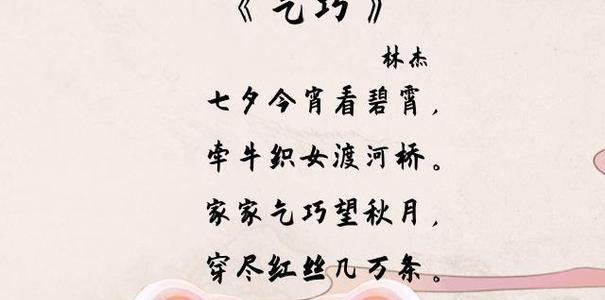 《乞巧》
林杰
七夕今宵看碧霄，
牵牛织女渡河桥。
家家乞巧望秋月，
穿尽红丝几万条。